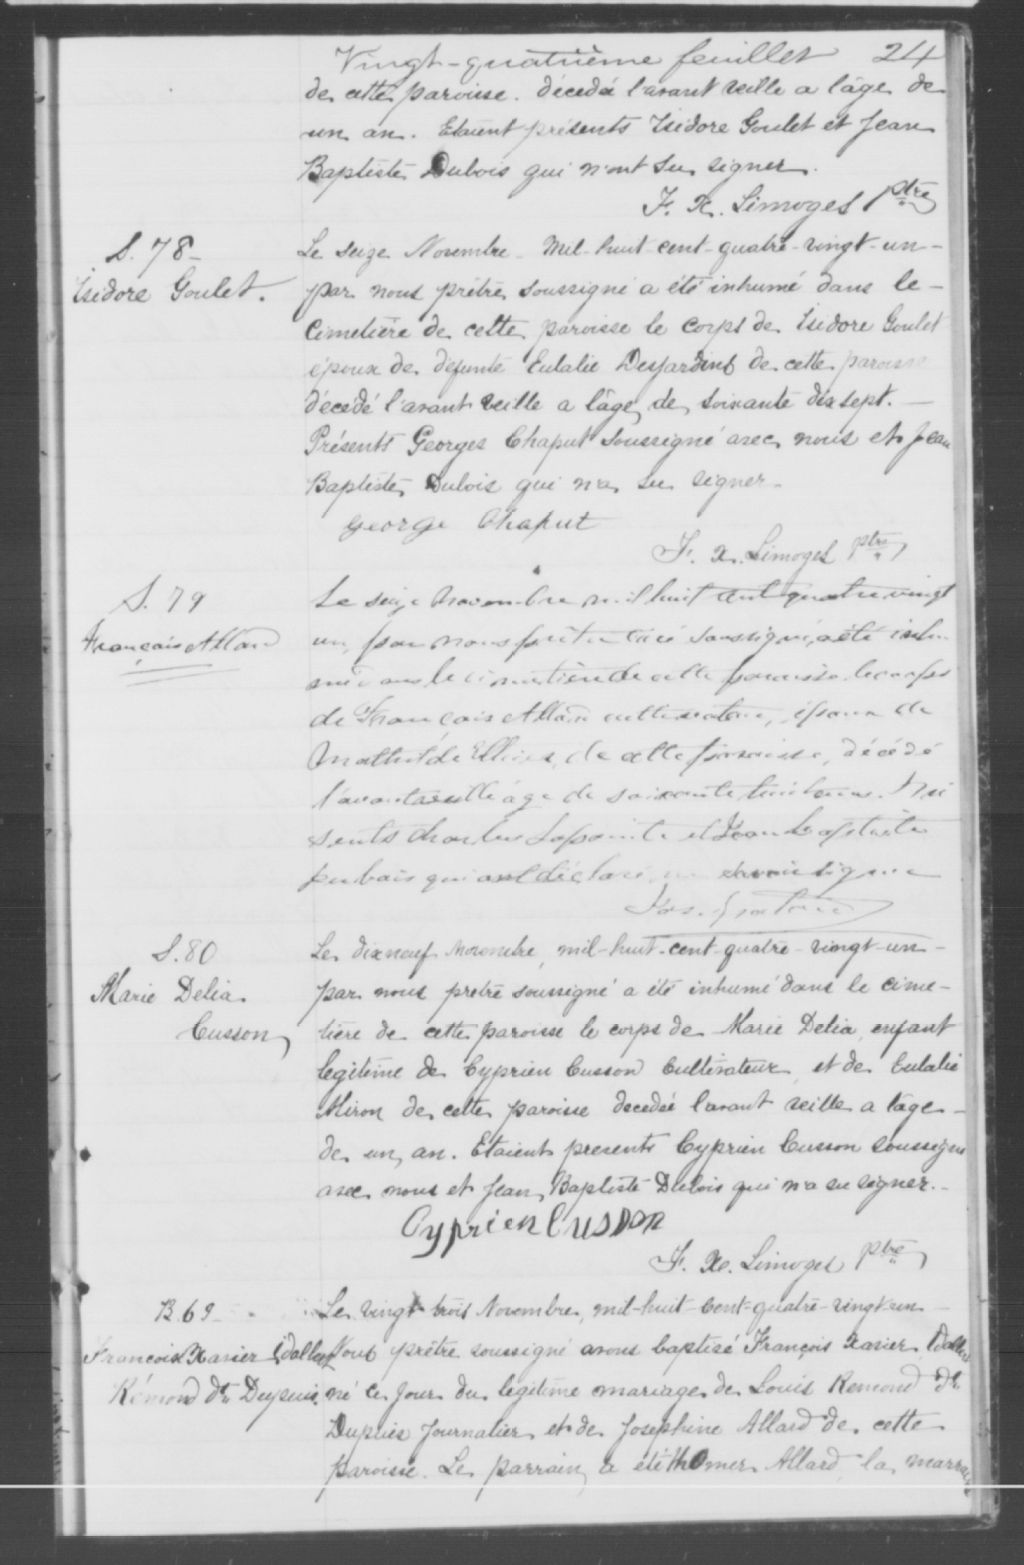 Vingt-quatrième feuillet 24
de cette paroisse. décedé l'avant veille a l'âge de
un an. Etaient présents Isidore Goulet et Jean
Baptiste Dubois qui n'ont su signer.
F. X. Limoges ptre
S. 78
Isidore Goulet.
Le seize Novembre mil-huit-cent-quatre-vingt-un-
par nous prêtre soussigné a été inhumé dans le-
Cimetière de cette paroisse le corps de Isidore Goulet
époux de défunte Eulalie Desjardins de cette paroisse
décédé l'avant veille a l'âge de soixante dix sept. —
Présents Georges Chaput soussigné avec nous et Jean
Baptiste Dubois qui n'a su signer-
George Chaput
F. X. Limoges ptre
S. 79
François Allard
Le seize novembre mil huit cent quatre vingt
un, par nous prêtre curé soussigné, a été inhu-
mé dans le cimetière de cette paroisse le corps
de François Allard cultivateur, époux de
Mathilde de cette paroisse, décédé
l'avant veille âgé de soixante huit ans. Pré
sents Charles Lapointe et Jean baptiste
Dubois qui ont déclaré ne savoir signer
S. 80
Marie Delia
Cusson
Le dix neuf Novembre, mil-huit-cent-quatre-vingt-un-
par nous prêtre soussigné a été inhumé dans le cime-
tière de cette paroisse le corps de Marie Delia, enfant
légitime de Cyprien Cusson Cultivateur et de Eulalie
Miron de cette paroisse decedée l'avant veille a l'age-
de un, an. Etaient presents Cyprien Cusson soussigné
avec nous et Jean Baptiste Dubois qui n'a su signer.-
Cyprien Cusson
F. X. Limoges ptre
B. 69
François Xavier
Rémond dt Dupuis.
Le vingt trois Novembre, mil-huit-cent-quatre-vingt-un-
Nous prêtre soussigné avons baptisé François Xavier
né ce jour du légitime mariage de Louis Remond dt
Dupuis Journalier et de Josephine Allard de cette
paroisse. Le parrain a été thomer Allard, la marraine